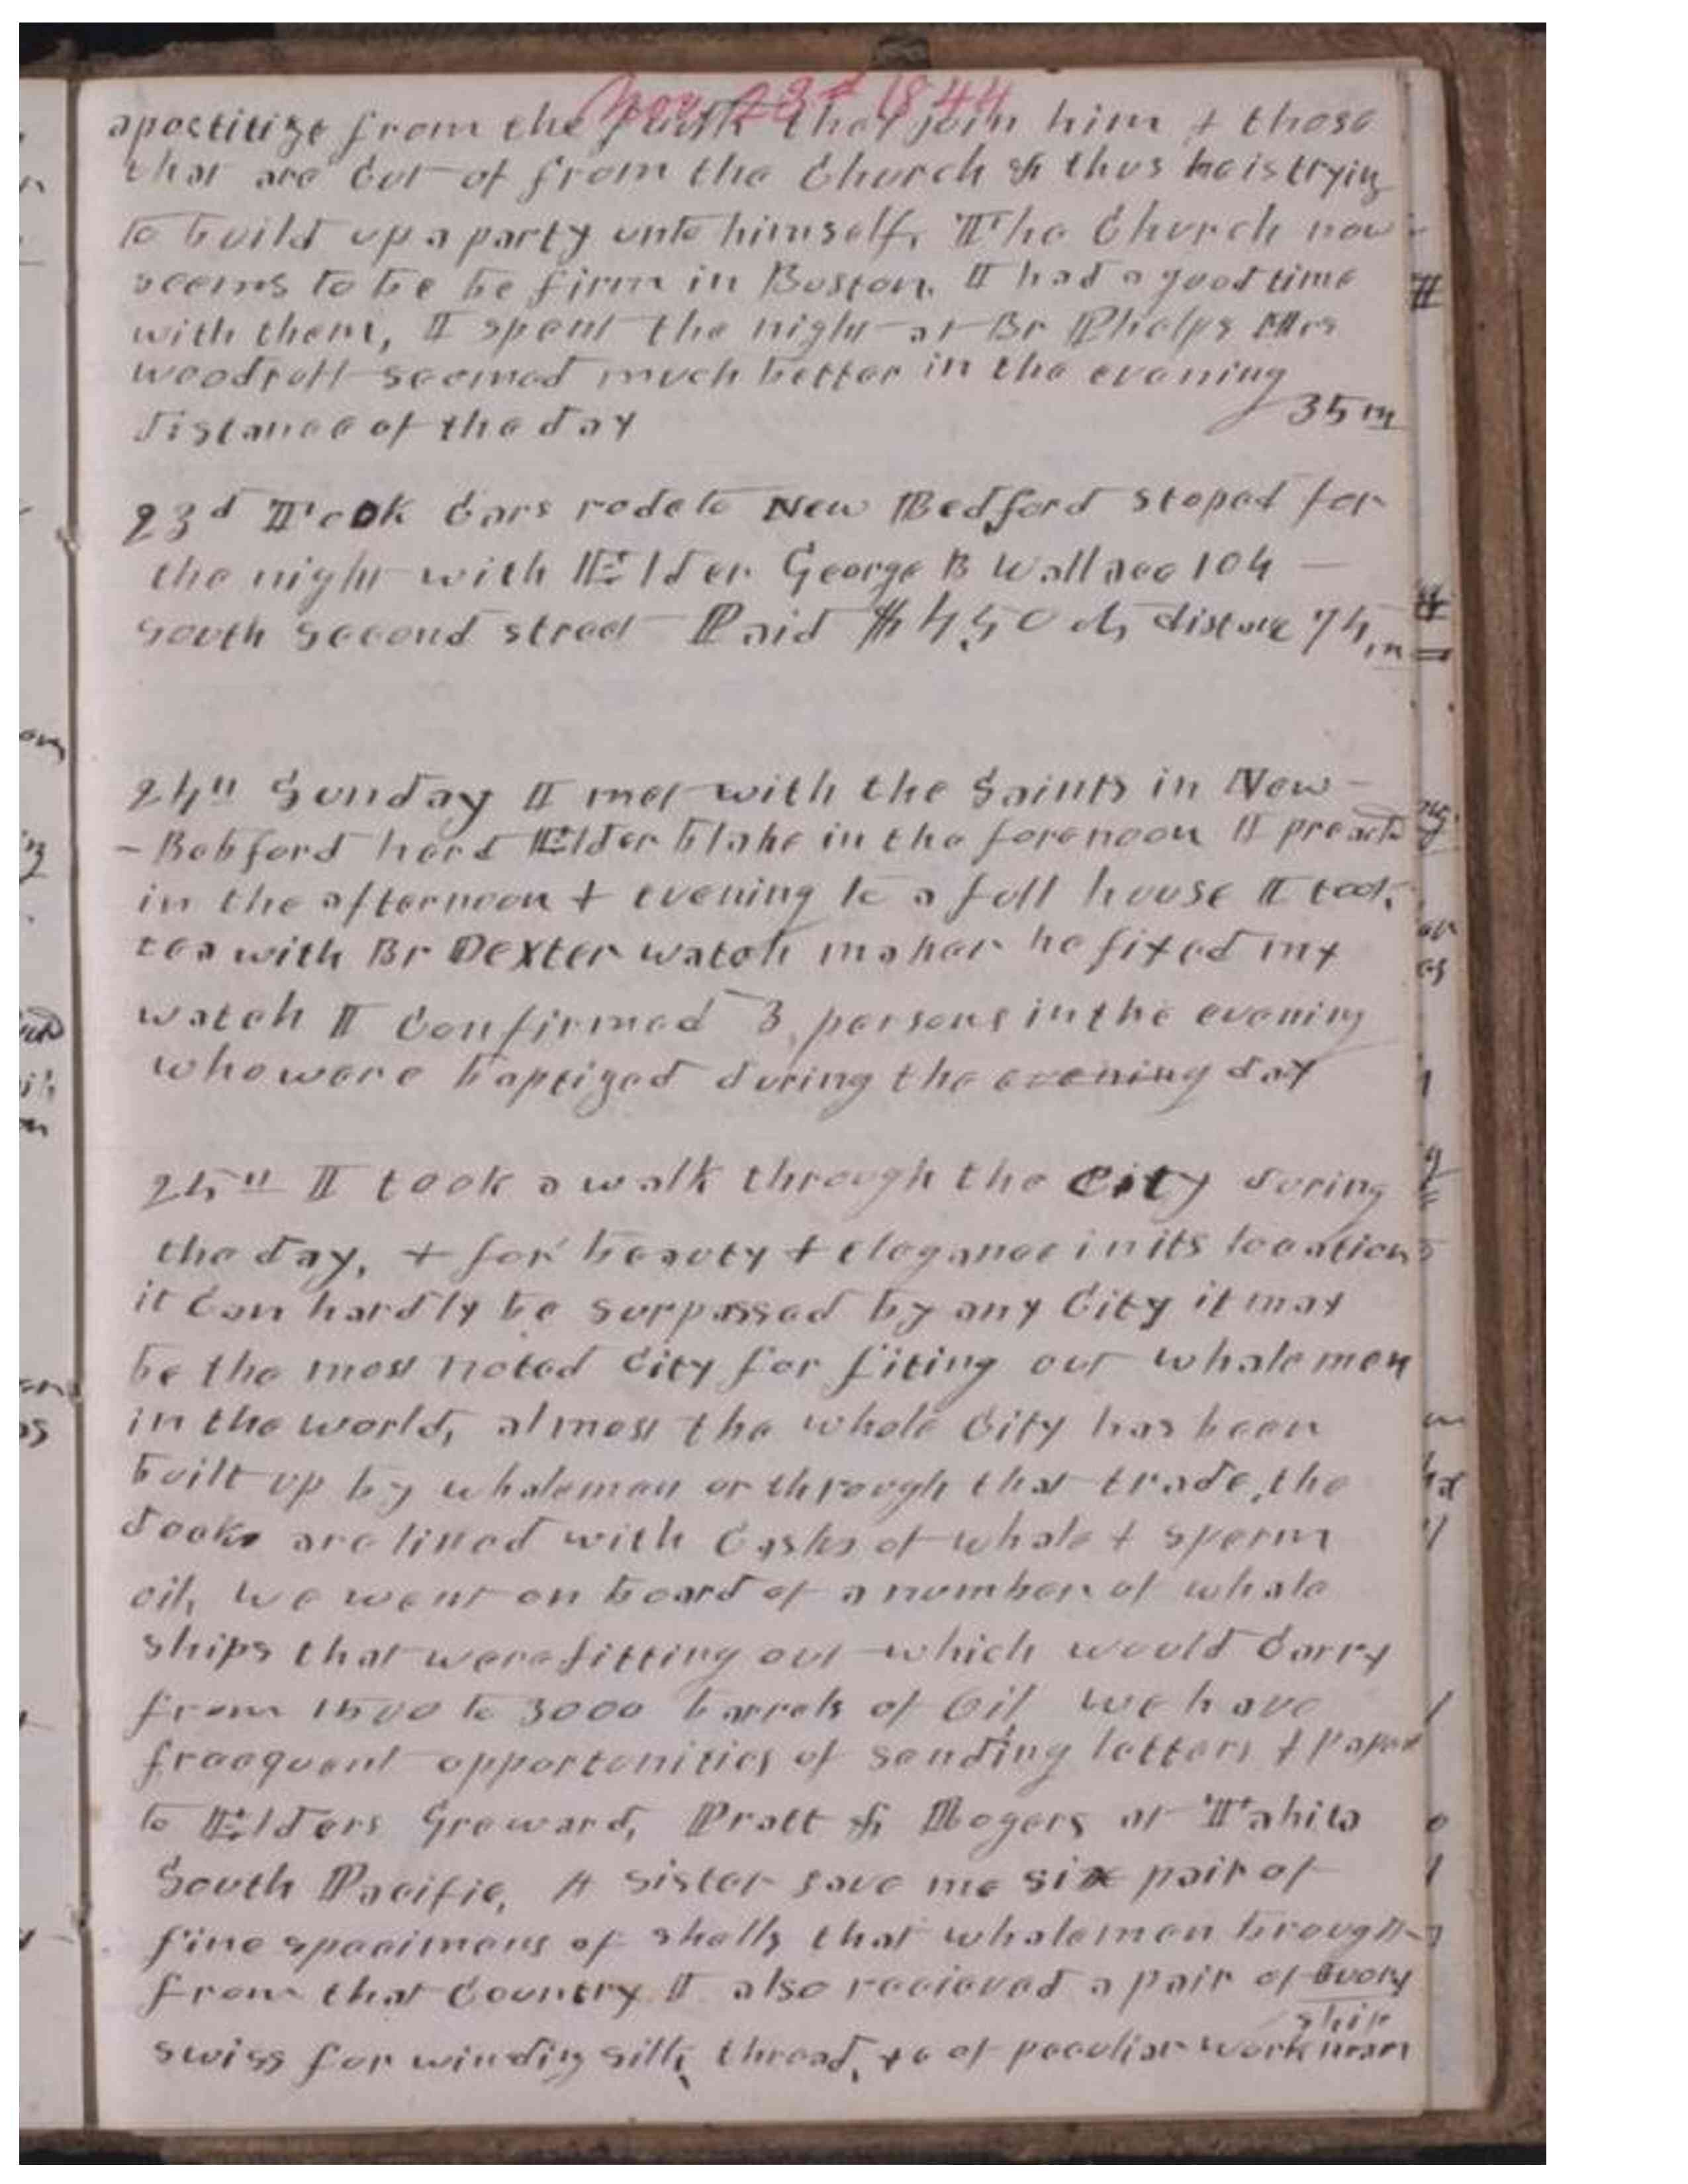 Nov 23d 1844
apostitize from the faith they join him & those
that are cut of from the Church & thus he is trying
to build up a party unto himself, The Church now
seems to be be firm in Boston. I had a good time
with them, I spent the night at Br Phelps Mrs
woodruff seemed much better in the evening
distance of the day 35 m
23d Took Cars rode to New Bedford stoped for
the night with Elder George B Wallace 104
South Second street Paid $4,50 cts distance 75 m
24th Sunday I met with the Saints in New-
-Bebford herd Elder blake in the forenoon I preach
in the afternoon & evening to a full house I took
tea with Br Dexter watch maker he fixed my
watch I Confirmed 3 persons in the evening
who were baptized during the evening day
25th I took a walk through the City during
the day, & for beauty & elegance in its location
it Can hardly be surpassed by any City it may
be the most noted City for fiting out whalemen
in the world, almost the whole City has been
built up by whalemen or through that trade, the
docks are lined with Casks of whale & sperm
oil, we went on board of a number of whale
ships that were fitting out which would Carry
from 1500 to 3000 barrels of Oil we have
fraequent opportunities of sending letters & paper
to Elders Groward, Pratt & Rogers at Tahita
South Pacific, A Sister gave me six pair of
fine specimens of shells that whalemen brought
from that Country I also recieved a pair of Ivory
swiss for winding silk, thread, &c of peculiar workman
ship